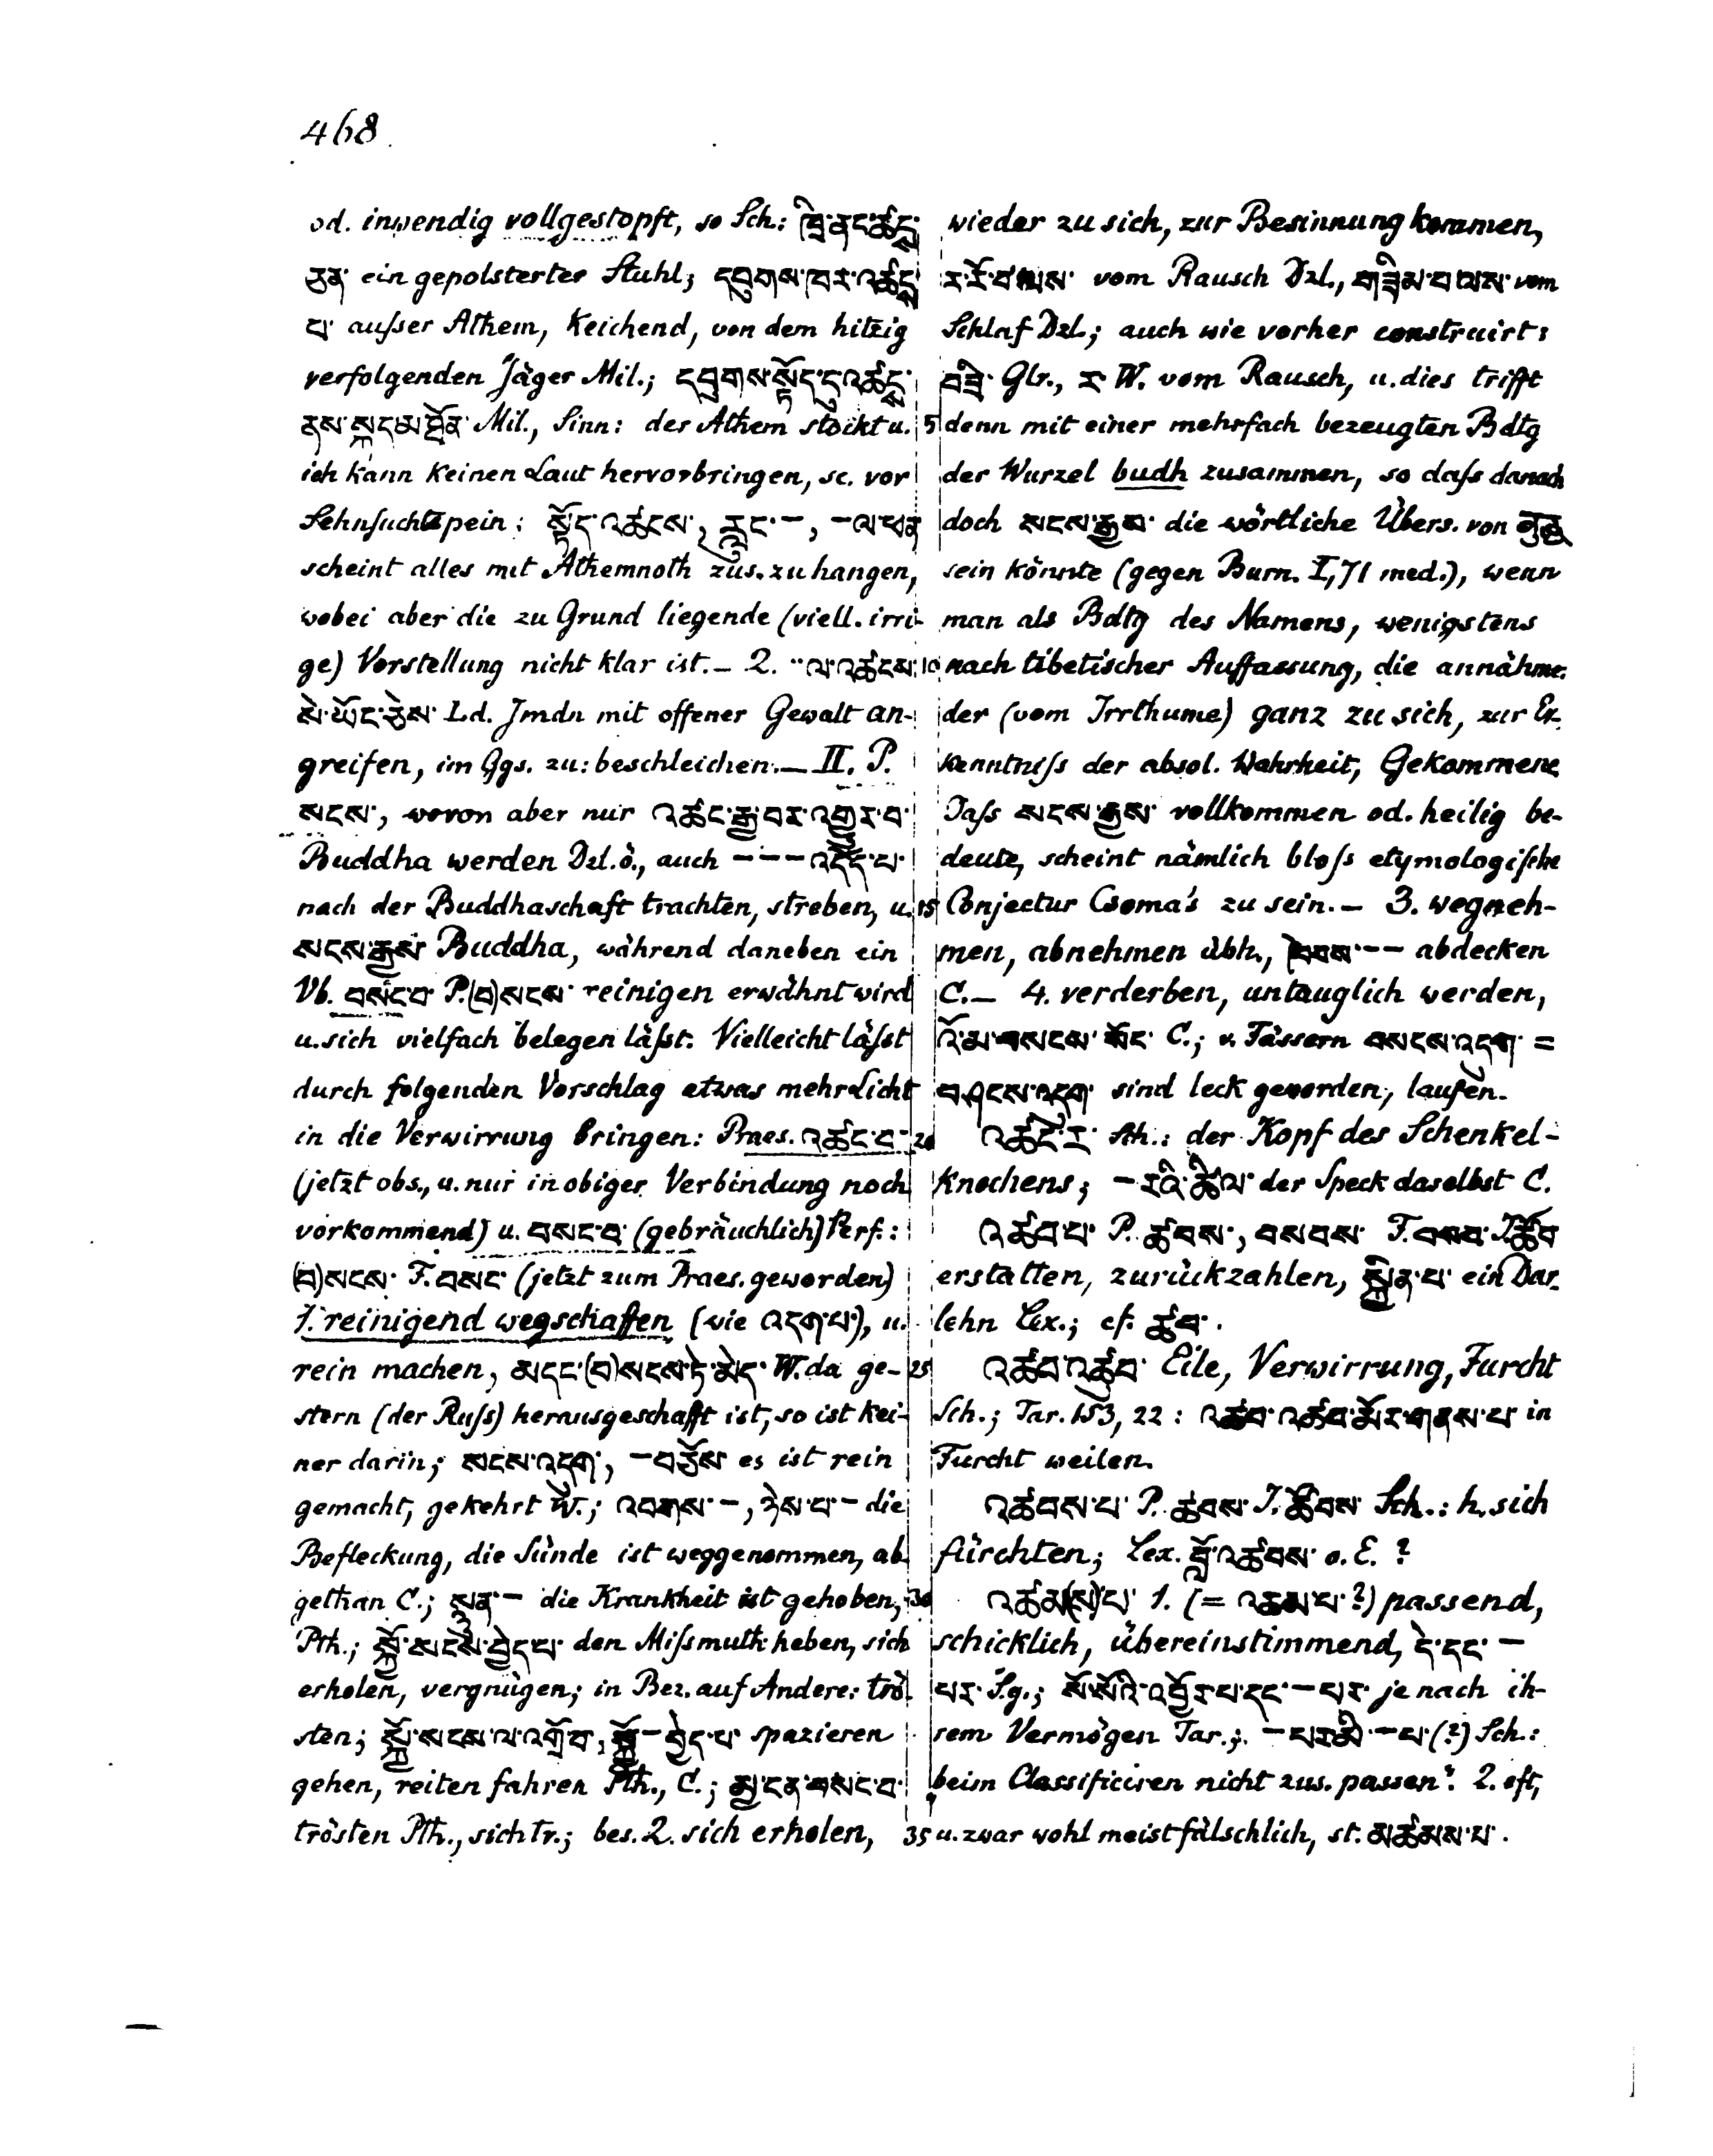 468
od. inwendig vollgestopft, so Sch.: ཁྲི་ནང་ཚང་
ཅན་ ein gepolsterter Stuhl; དབུགས་ཁར་འཚང་
པ་ ausser Athem, keichend, von dem hitzig
verfolgenden Jäger Mil.; དབུགས་སྟོད་དུ་འཚང་
ནས་སྐད་མ་ཐོན་ Mil., Sinn: der Athem stockt u.
ich kann keinen Laut hervorbringen, sc. vor
Sehnsuchtspein; སྟོད་འཚངས་, རླུང་–, –ལ་ཕན་
scheint alles mit Athemnoth zus. zu hangen,
wobei aber die zu Grund liegende (viell. irri-
ge) Vorstellung nicht klar ist. – 2. ··ལ་འཚངས་
སེ་ཡོང་ཅེས་ Ld. Jmdn mit offener Gewalt an-
greifen, im Ggs. zu: beschleichen. – II. P.
སངས་, wovon aber nur འཚང་རྒྱ་བར་འགྱུར་བ་
Buddha werden Dzl. ö., auch – – – འདོད་པ་
nach der Buddhaschaft trachten, streben, u.
སངས་རྒྱས་ Buddha, während daneben ein
Vb. བསང་བ་ P. (བ)སངས་ reinigen erwähnt wird
u. sich vielfach belegen läſst. Vielleicht läſst
durch folgenden Vorschlag etwas mehr Licht
in die Verwirrung bringen: Praes. འཚང་བ་
(jetzt obs., u. nur in obiger Verbindung noch
vorkommend) u. བསང་བ་ (gebräuchlich) Perf.:
(བ)སངས་ F. བསང་ (jetzt zum Praes. geworden)
1. reinigend wegschaffen (wie འདག་པ་), u.
rein machen, མདང་(བ)སངས་ཏེ་མེད་ W. da ge-
stern (der Ruſs) herausgeschafft ist, so ist kei-
ner darin; སངས་འདག་, –བཅོས་ es ist rein
gemacht, gekehrt W.; འབགས་–, ཉེས་པ་– die
Befleckung, die Sünde ist weggenommen, ab-
gethan C.; སྣན་– die Krankheit ist gehoben,
Pth.; སྐྱོ་སངས་བྱེད་པ་ den Miſsmuth heben, sich
erholen, vergnügen; in Bez. auf Andere: trö-
sten; སྐྱོ་སངས་ལ་འགྲོ་བ་, སྐྱོ་–བྱེད་པ་ spazieren
gehen, reiten fahren Pth., C.; མྱ་ངན་བསང་བ་
trösten Pth., sich tr.; bes. 2. sich erholen,
wieder zu sich, zur Besinnung kommen,
ར་རོ་བ་ལས་ vom Rausch Dzl., གཟིམ་པ་ལས་ vom
Schlaf Dzl.; auch wie vorher construirt:
བཟི་ Glr., ར་ W. vom Rausch, u. dies trifft
5 denn mit einer mehrfach bezeugten Bdtg
der Wurzel budh zusammen, so daſs danach
doch སངས་རྒྱས་ die wörtliche Übers. von बुद्ध
sein könnte (gegen Burn. I, 71 med.), wenn
man als Bdtg des Namens, wenigstens
10 nach tibetischer Auffassung, die annähme:
der (vom Irrthume) ganz zu sich, zur Er-
kenntniſs der absol. Wahrheit, Gekommene
Daſs སངས་རྒྱས་ vollkommen od. heilig be-
deute, scheint nämlich bloſs etymologische
15 Conjectur Csoma's zu sein. – 3. wegneh-
men, abnehmen übh., ཁེབས་– – abdecken
C. – 4. verderben, untauglich werden,
འོ་མ་བསངས་སོང་ C.; v. Fässern བསངས་འདག་ =
བཤངས་འདག་ sind leck geworden, laufen.
20 འཚང་ར་ Sth.: der Kopf des Schenkel-
knochens; –རའི་ཚིལ་ der Speck daselbst C.
འཚབ་པ་ P. ཚབས་, བསབས་ F. བསབ་ I. ཚོབ
erstatten, zurückzahlen, སྐྱིན་པ་ ein Dar-
lehn Lex.; cf. ཚབ་.
25 འཚབ་འཚུབ་ Eile, Verwirrung, Furcht
Sch.; Tar. 153, 22: འཚབ་འཚུབ་མོར་གནས་པ་ in
Furcht weilen.
འཚབས་པ་ P. ཚབས་ I. ཚོབས་ Sch.: h. sich
fürchten; Lex. བློ་འཚབས་ o. E. ?
30 འཚམ(ས)་པ་ 1. (= འཆམ་པ་ ?) passend,
schicklich, übereinstimmend, དེ་དང་ –
པར་ S.g.; སོ་སོའི་འབྱོར་པ་དང་–པར་ je nach ih-
rem Vermögen Tar.; –པར་མི་–པ་ (?) Sch.:
beim Classificiren nicht zus. passen". 2. oft,
35 u. zwar wohl meist fälschlich, st. མཚམས་པ་.